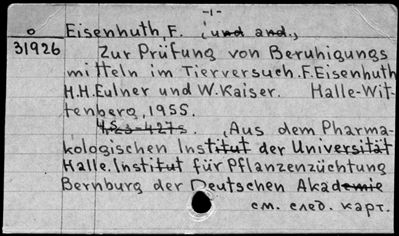 -1-
o Eisenhuth, F. (und and.,
31926 Zur Prüfung von Beruhigungs
mitteln im Tierversuch. F. Eisenhuth
H.H. Eulner und W. Kaiser. Halle-Wit-
tenberg, 1955.
423-427 s. (Aus dem Pharma-
kologischen Institut der Universität
Halle. Institut für Pflanzenzüchtung
Bernburg der Deutschen Akademie
см. след. карт.